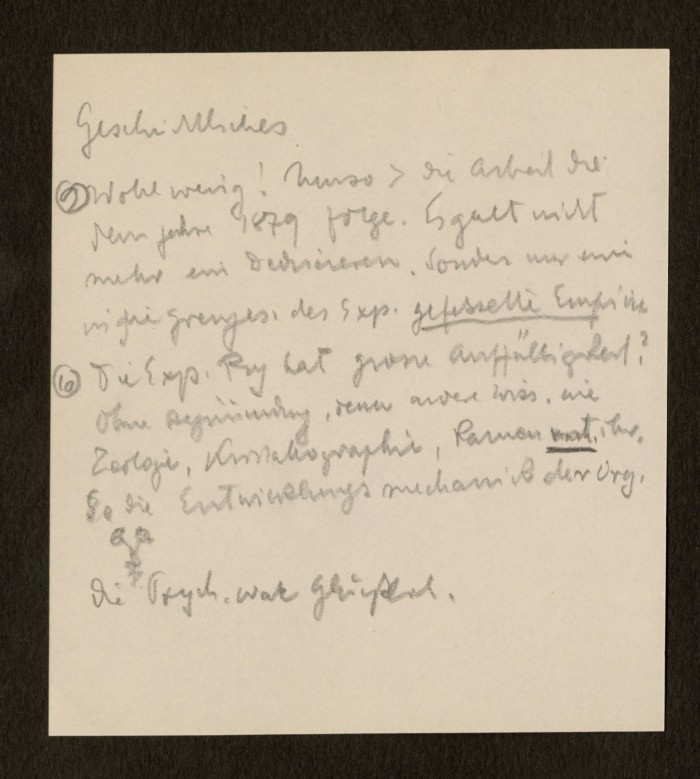 Geschichtliches
9) Wohl wenig! > die Arbeit die
dem Jahre 1879 folge. Es galt nicht
mehr ein Deduzieren. Sondern nur ein
in die Grenzen des Exp. gefesselte Empirie
10) Die Exp. Psy hat grosse Auffälligkeit?
Ohne Begründung, denn andere Wiss. wie
Zoologie, Kristallographie, kamen mit ihr.
So die Entwicklungsmechanik der Org.
die Psych. war